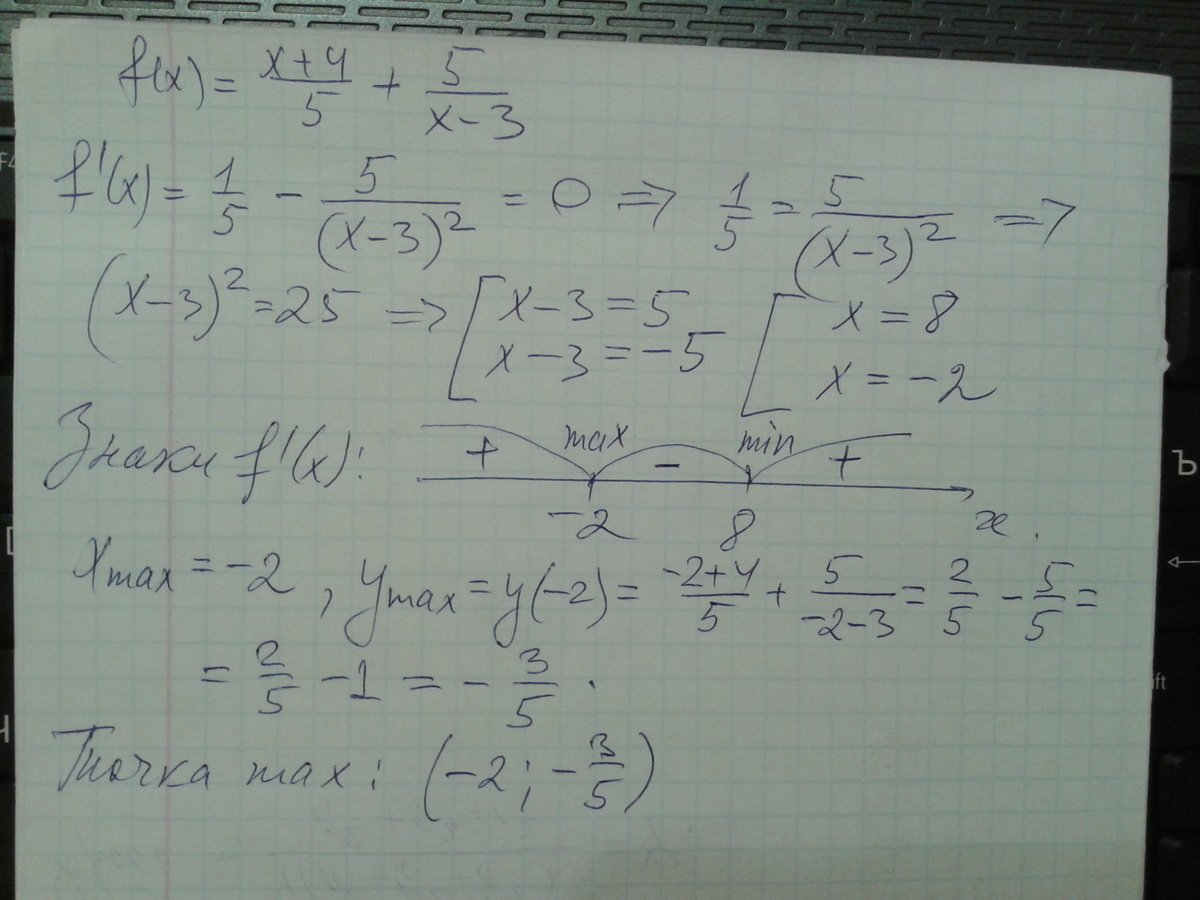 f(x) = (x+4)/5 + 5/(x-3)
f'(x) = 1/5 - 5/(x-3)² = 0 => 1/5 = 5/(x-3)² =>
(x-3)² = 25 => [ x-3=5 [ x=8
x-3=-5 x=-2
Знаки f'(x): + max - min +
-2 8 x.
Xmax = -2, ymax = y(-2) = (-2+4)/5 + 5/(-2-3) = 2/5 - 5/5 =
= 2/5 - 1 = - 3/5.
Точка max: (-2; -3/5)
F4
Ъ
←
Ч
ift